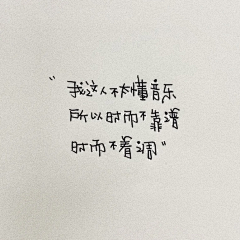 "我这人不太懂音乐
所以时而不靠谱
时而不着调"